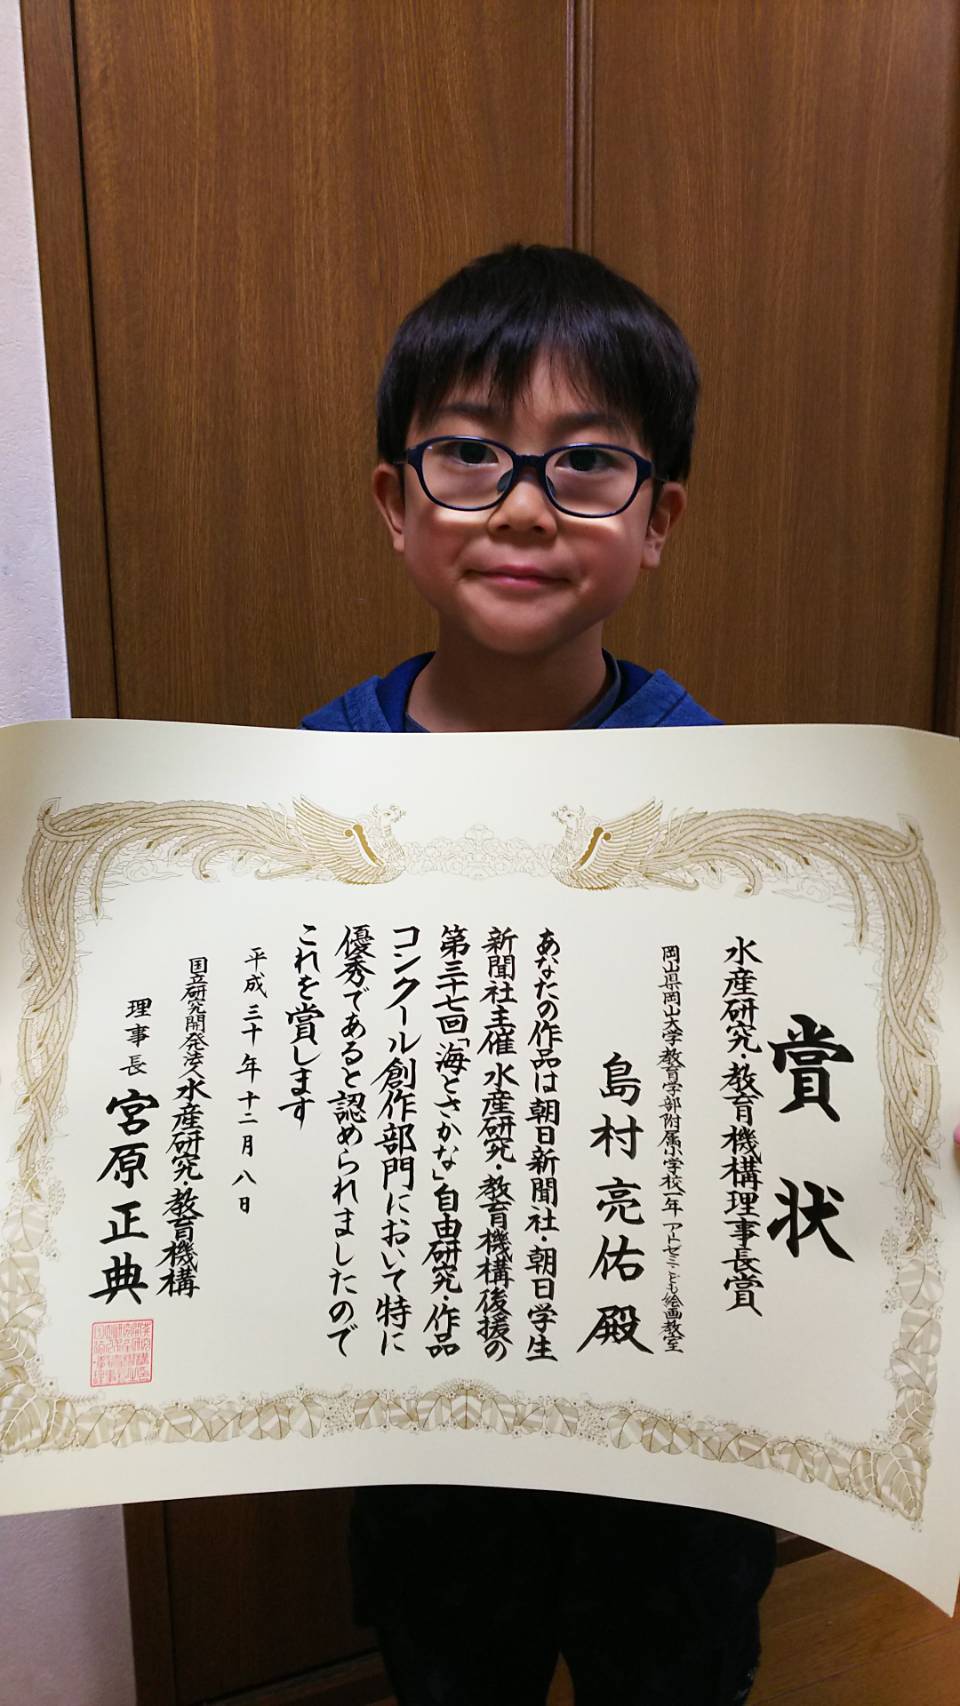 賞状
水産研究・教育機構理事長賞
岡山県岡山大学教育学部附属小学校一年 アトリエゼミこども絵画教室
島村亮佑殿
あなたの作品は朝日新聞社・朝日学生
新聞社主催 水産研究・教育機構後援の
第三十七回「海とさかな」自由研究・作品
コンクール創作部門において特に
優秀であると認められましたので
これを賞します
平成三十年十二月八日
国立研究開発法人水産研究・教育機構
理事長 宮原正典